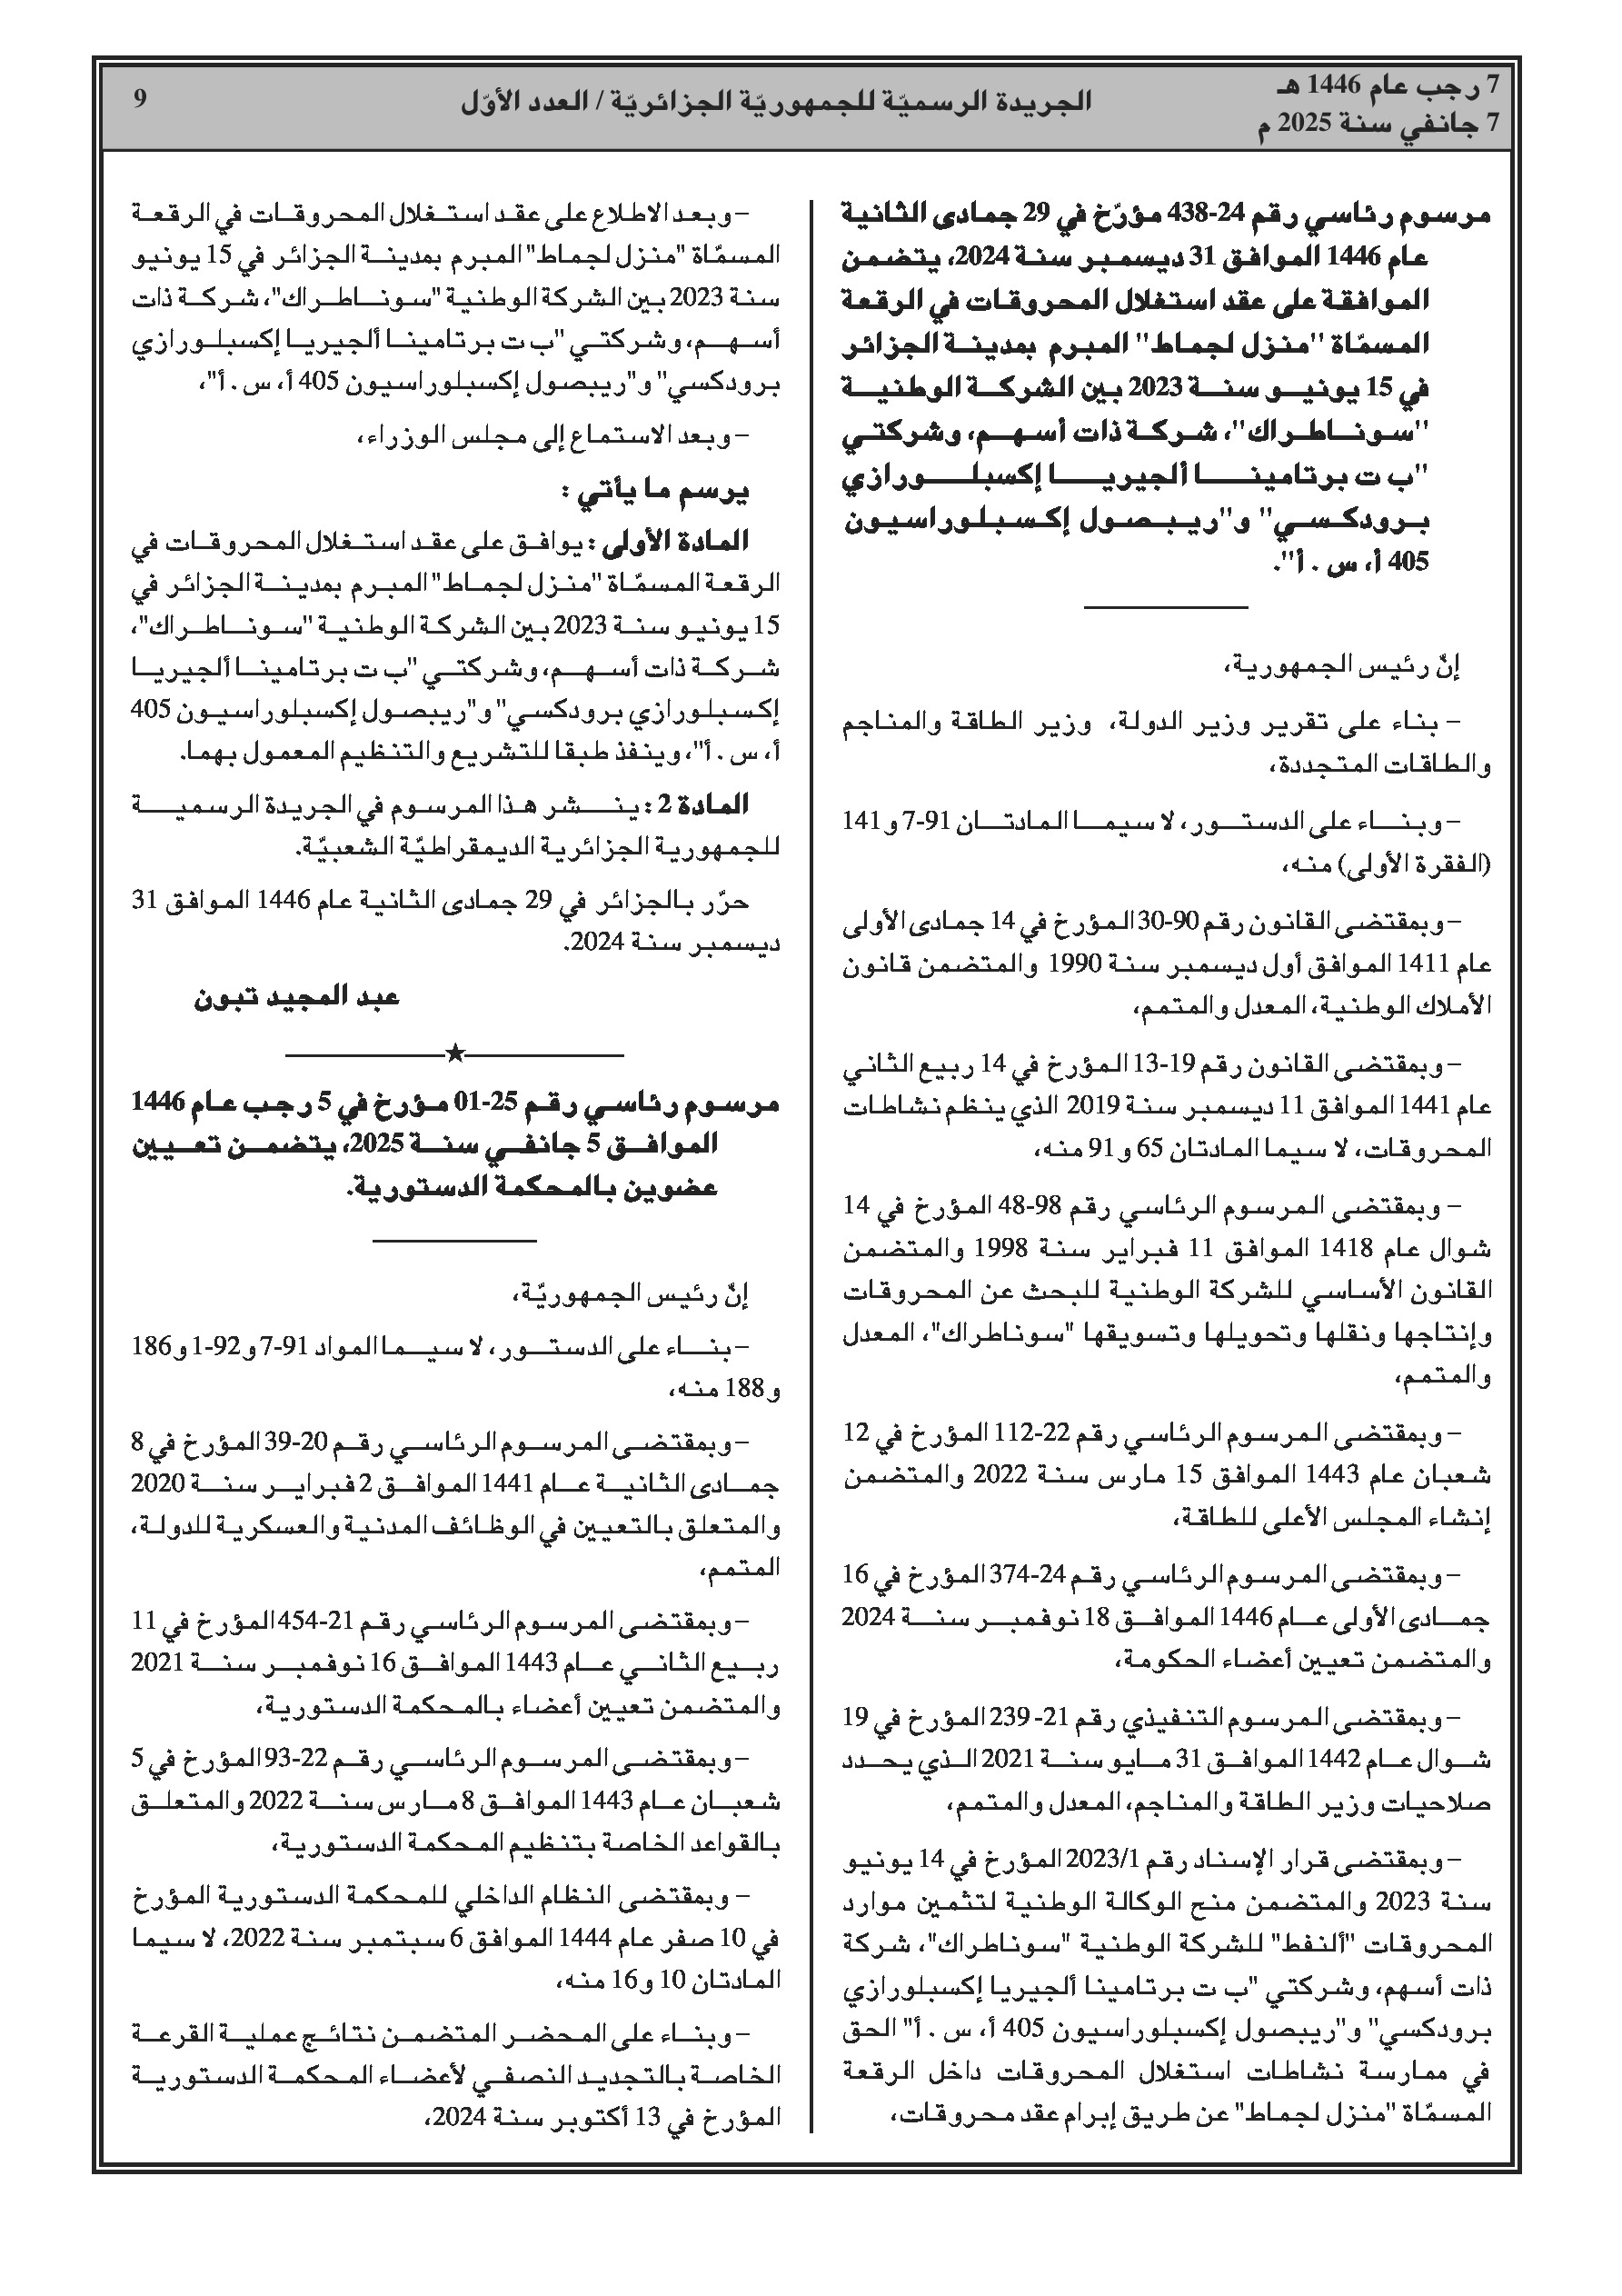 7 رجب عام 1446 هـ
7 جانفي سنة 2025 م
الجريدة الرسميّة للجمهوريّة الجزائريّة / العدد الأوّل
9
مرسوم رئاسي رقم 24-438 مؤرّخ في 29 جمادى الثانية
عام 1446 الموافق 31 ديسمبر سنة 2024، يتضمن
الموافقة على عقد استغلال المحروقات في الرقعة
المسمّاة "منزل لجماط" المبرم بمدينة الجزائر
في 15 يونيو سنة 2023 بين الشركة الوطنية
"سوناطراك"، شركة ذات أسهم، وشركتي
"ب ت برتامينا ألجيريا إكسبلورازي
برودكسي" و"ريبصول إكسبلوراسيون
405 أ، س . أ".
إنّ رئيس الجمهورية،
– بناء على تقرير وزير الدولة، وزير الطاقة والمناجم
والطاقات المتجددة،
– وبناء على الدستور، لا سيما المادتان 91-7 و141
(الفقرة الأولى) منه،
– وبمقتضى القانون رقم 90-30 المؤرخ في 14 جمادى الأولى
عام 1411 الموافق أول ديسمبر سنة 1990 والمتضمن قانون
الأملاك الوطنية، المعدل والمتمم،
– وبمقتضى القانون رقم 19-13 المؤرخ في 14 ربيع الثاني
عام 1441 الموافق 11 ديسمبر سنة 2019 الذي ينظم نشاطات
المحروقات، لا سيما المادتان 65 و91 منه،
– وبمقتضى المرسوم الرئاسي رقم 98-48 المؤرخ في 14
شوال عام 1418 الموافق 11 فبراير سنة 1998 والمتضمن
القانون الأساسي للشركة الوطنية للبحث عن المحروقات
وإنتاجها ونقلها وتحويلها وتسويقها "سوناطراك"، المعدل
والمتمم،
– وبمقتضى المرسوم الرئاسي رقم 22-112 المؤرخ في 12
شعبان عام 1443 الموافق 15 مارس سنة 2022 والمتضمن
إنشاء المجلس الأعلى للطاقة،
– وبمقتضى المرسوم الرئاسي رقم 24-374 المؤرخ في 16
جمادى الأولى عام 1446 الموافق 18 نوفمبر سنة 2024
والمتضمن تعيين أعضاء الحكومة،
– وبمقتضى المرسوم التنفيذي رقم 21- 239 المؤرخ في 19
شوال عام 1442 الموافق 31 مايو سنة 2021 الذي يحدد
صلاحيات وزير الطاقة والمناجم، المعدل والمتمم،
– وبمقتضى قرار الإسناد رقم 2023/1 المؤرخ في 14 يونيو
سنة 2023 والمتضمن منح الوكالة الوطنية لتثمين موارد
المحروقات "ألنفط" للشركة الوطنية "سوناطراك"، شركة
ذات أسهم، وشركتي "ب ت برتامينا ألجيريا إكسبلورازي
برودكسي" و"ريبصول إكسبلوراسيون 405 أ، س . أ" الحق
في ممارسة نشاطات استغلال المحروقات داخل الرقعة
المسمّاة "منزل لجماط" عن طريق إبرام عقد محروقات،
– وبعد الاطلاع على عقد استغلال المحروقات في الرقعة
المسمّاة "منزل لجماط" المبرم بمدينة الجزائر في 15 يونيو
سنة 2023 بين الشركة الوطنية "سوناطراك"، شركة ذات
أسهم، وشركتي "ب ت برتامينا ألجيريا إكسبلورازي
برودكسي" و"ريبصول إكسبلوراسيون 405 أ، س . أ"،
– وبعد الاستماع إلى مجلس الوزراء،
يرسم ما يأتي :
المادة الأولى : يوافق على عقد استغلال المحروقات في
الرقعة المسمّاة "منزل لجماط" المبرم بمدينة الجزائر في
15 يونيو سنة 2023 بين الشركة الوطنية "سوناطراك"،
شركة ذات أسهم، وشركتي "ب ت برتامينا ألجيريا
إكسبلورازي برودكسي" و"ريبصول إكسبلوراسيون 405
أ، س . أ"، وينفذ طبقا للتشريع والتنظيم المعمول بهما.
المادة 2 : ينشر هذا المرسوم في الجريدة الرسمية
للجمهورية الجزائرية الديمقراطيّة الشعبيّة.
حرّر بالجزائر في 29 جمادى الثانية عام 1446 الموافق 31
ديسمبر سنة 2024.
عبد المجيد تبون
مرسوم رئاسي رقم 25-01 مؤرخ في 5 رجب عام 1446
الموافق 5 جانفي سنة 2025، يتضمن تعيين
عضوين بالمحكمة الدستورية.
إنّ رئيس الجمهوريّة،
– بناء على الدستور، لا سيما المواد 91-7 و92-1 و186
و188 منه،
– وبمقتضى المرسوم الرئاسي رقم 20-39 المؤرخ في 8
جمادى الثانية عام 1441 الموافق 2 فبراير سنة 2020
والمتعلق بالتعيين في الوظائف المدنية والعسكرية للدولة،
المتمم،
– وبمقتضى المرسوم الرئاسي رقم 21-454 المؤرخ في 11
ربيع الثاني عام 1443 الموافق 16 نوفمبر سنة 2021
والمتضمن تعيين أعضاء بالمحكمة الدستورية،
– وبمقتضى المرسوم الرئاسي رقم 22-93 المؤرخ في 5
شعبان عام 1443 الموافق 8 مارس سنة 2022 والمتعلق
بالقواعد الخاصة بتنظيم المحكمة الدستورية،
– وبمقتضى النظام الداخلي للمحكمة الدستورية المؤرخ
في 10 صفر عام 1444 الموافق 6 سبتمبر سنة 2022، لا سيما
المادتان 10 و16 منه،
– وبناء على المحضر المتضمن نتائج عملية القرعة
الخاصة بالتجديد النصفي لأعضاء المحكمة الدستورية
المؤرخ في 13 أكتوبر سنة 2024،